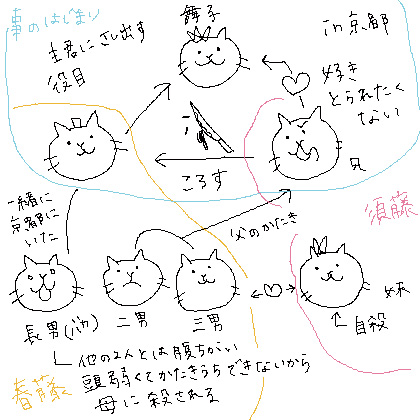 事のはじまり
舞子
in京都
主君にさし出す
役目
好き
とられたく
ない
ころす
兄
一緒に
京都に
いた
須藤
父のかたき
長男(バカ)
二男
三男
妹
自殺
他の2人とは腹ちがい
頭弱くてかたきうちできないから
母に殺される
春藤